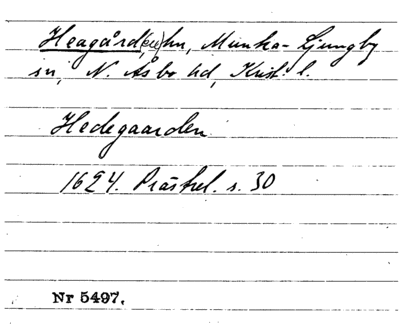 Heagård(en) hn, Munka-Ljungby
sn, N. Åsbo hd, Krist. l.
Hedegaarden
1624. Prästrel. s. 30
Nr 5497.